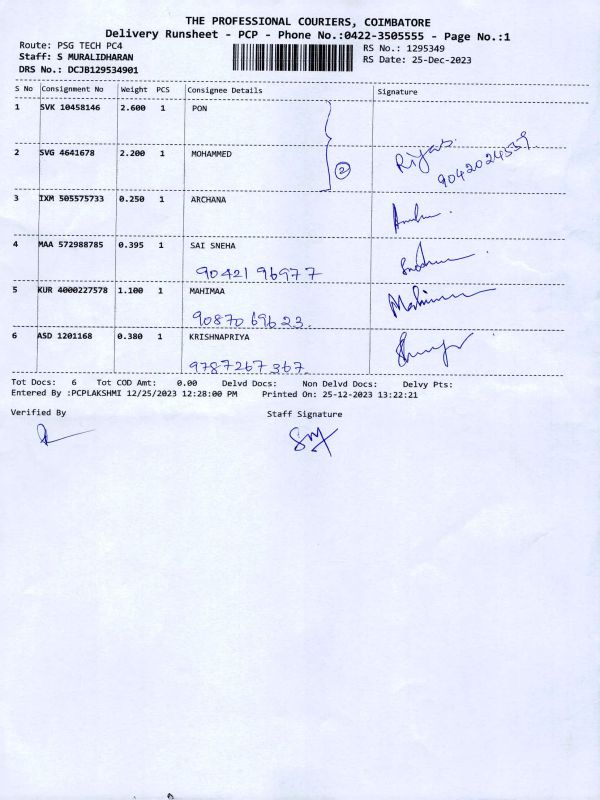 THE PROFESSIONAL COURIERS, COIMBATORE
Delivery Runsheet - PCP - Phone No.:0422-3505555 - Page No.:1
Route: PSG TECH PC4
RS No.: 1295349
Staff: S MURALIDHARAN
RS Date: 25-Dec-2023
DRS No.: DCJB129534901
S No Consignment No Weight PCS Consignee Details Signature
1 SVK 10458146 2.600 1 PON
2 SVG 4641678 2.200 1 MOHAMMED
2 Riyas
9042024539
3 IXM 505575733 0.250 1 ARCHANA
4 MAA 572988785 0.395 1 SAI SNEHA
90421 96977
5 KUR 4000227578 1.100 1 MAHIMAA
90870 69623.
6 ASD 1201168 0.380 1 KRISHNAPRIYA
9787267367.
Tot Docs: 6 Tot COD Amt: 0.00 Delvd Docs: Non Delvd Docs: Delvy Pts:
Entered By :PCPLAKSHMI 12/25/2023 12:28:00 PM Printed On: 25-12-2023 13:22:21
Verified By Staff Signature